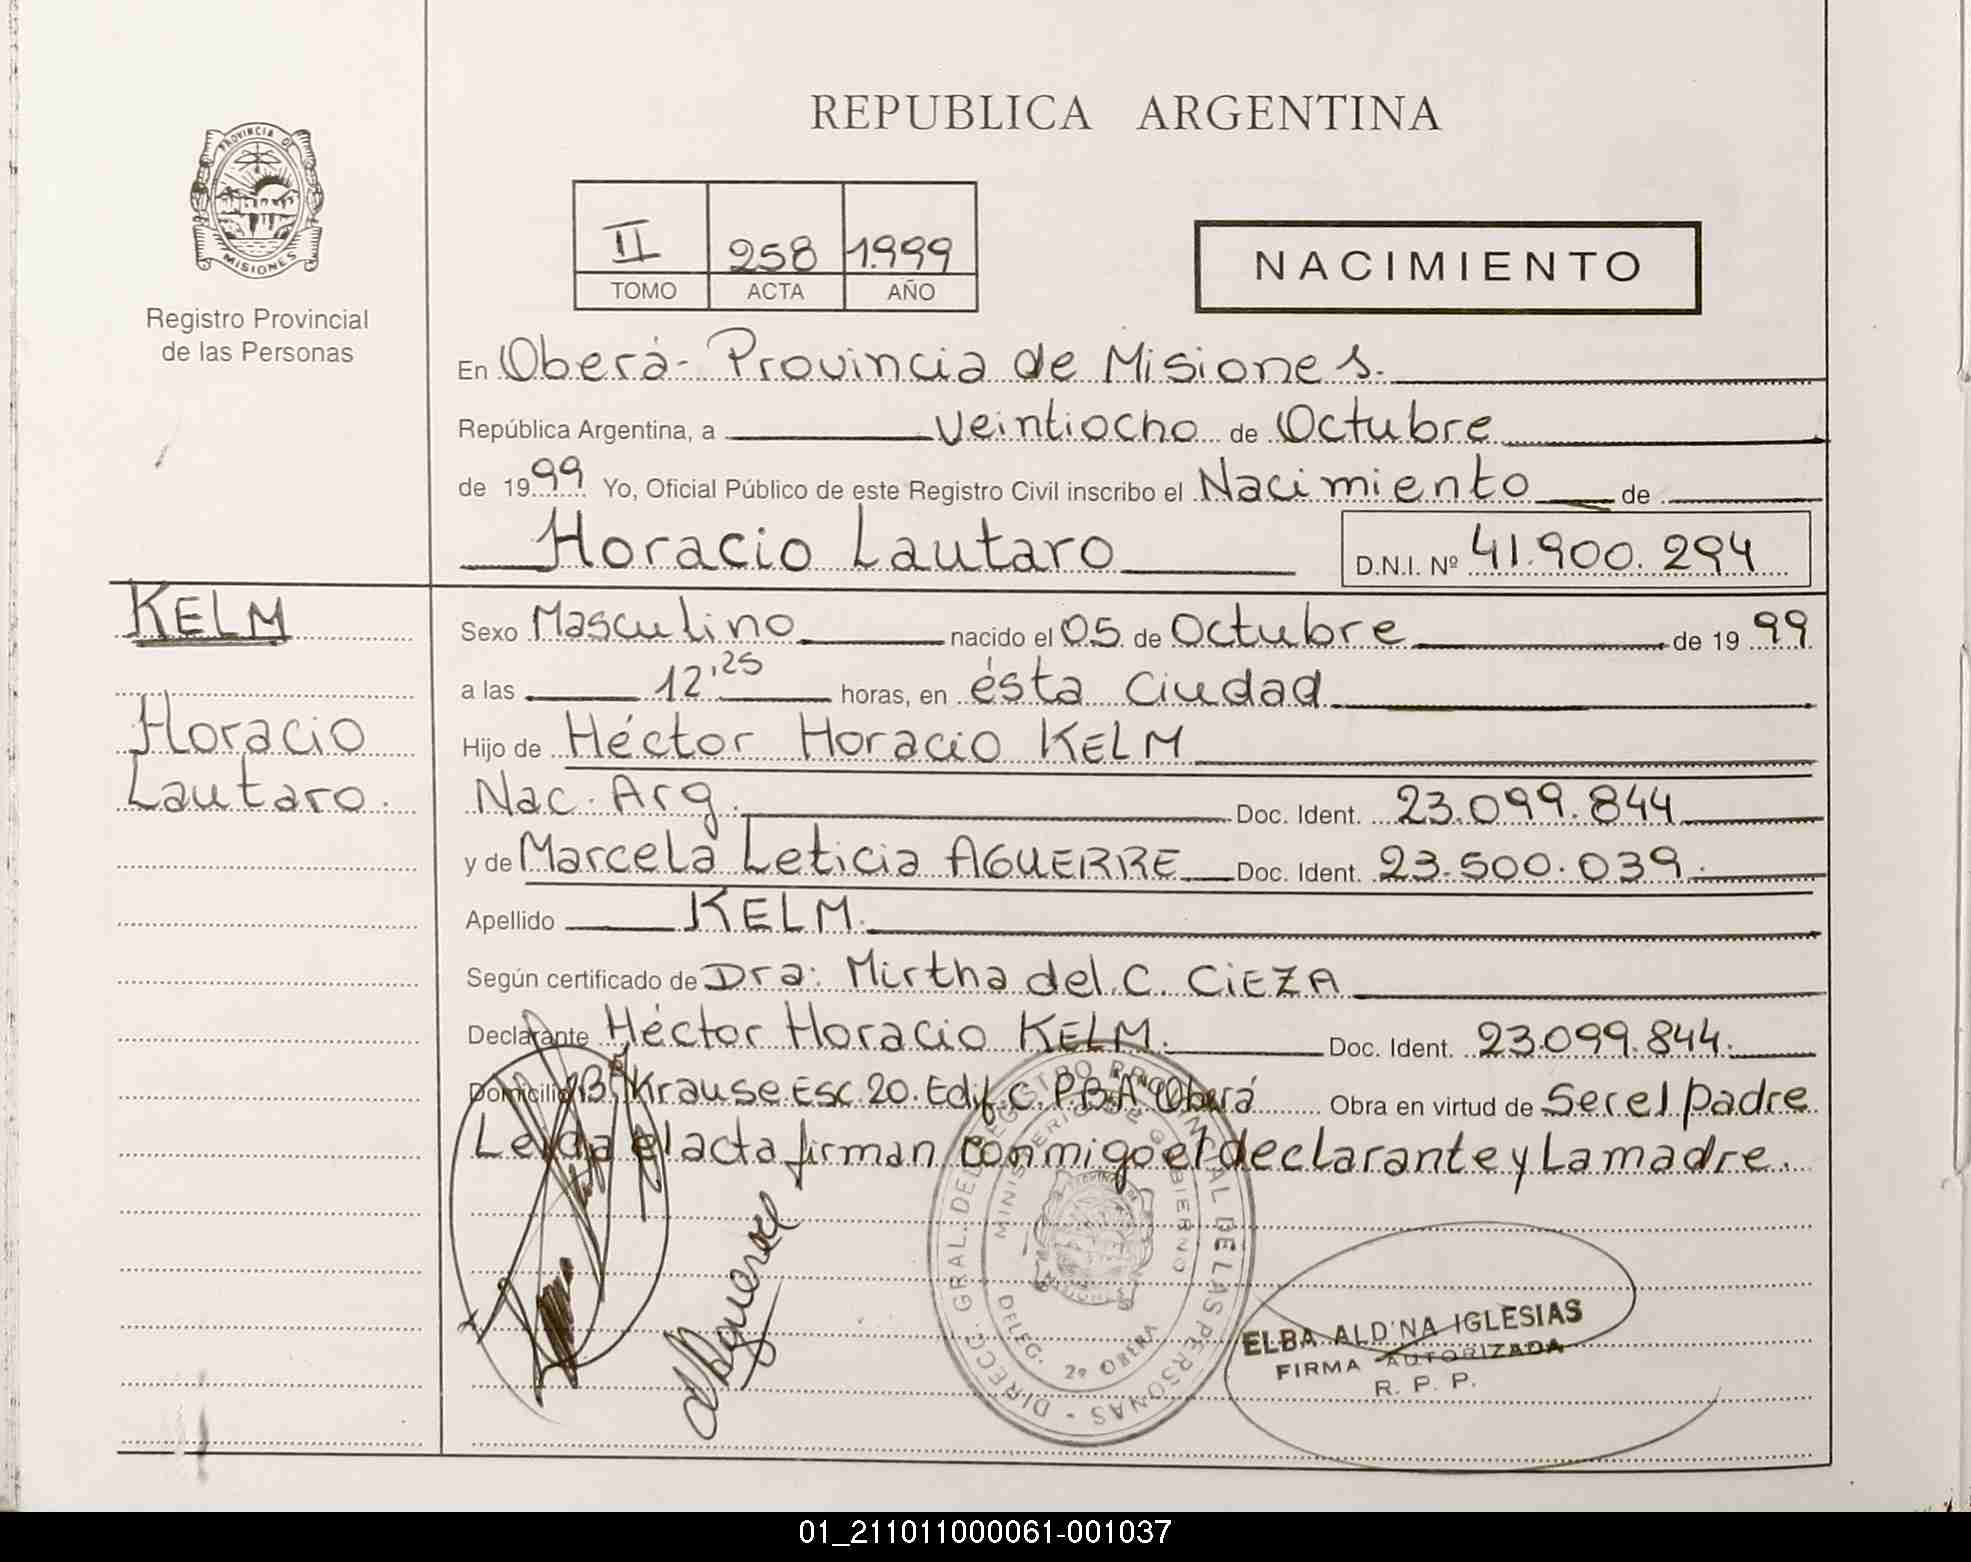 REPUBLICA ARGENTINA
PROVINCIA DE
MISIONES
Registro Provincial
de las Personas
II 258 1.999
TOMO ACTA AÑO
NACIMIENTO
En Oberá - Provincia de Misiones.
República Argentina, a veintiocho de Octubre
de 1999 Yo, Oficial Público de este Registro Civil inscribo el Nacimiento de
Horacio Lautaro D.N.I. Nº 41.900.294
KELM
Horacio
Lautaro.
Sexo Masculino nacido el 05 de Octubre de 1999
a las 12,25 horas, en ésta Ciudad
Hijo de Héctor Horacio KELM
Nac. Arg. Doc. Ident. 23.099.844
y de Marcela Leticia AGUERRE Doc. Ident. 23.500.039.
Apellido KELM.
Según certificado de Dra: Mirtha del C. CIEZA
Declarante Héctor Horacio KELM. Doc. Ident. 23.099.844.
Domicilio Bº Krause Esc. 20. Edif. C. P.B "A" Oberá Obra en virtud de Ser el padre
Leída el acta firman conmigo el declarante y La madre.
DIRECC. GRAL. DEL REGISTRO PROVINCIAL DE LAS PERSONAS -
MINISTERIO DE GOBIERNO
DELEG. 2º OBERA
ELBA ALDINA IGLESIAS
FIRMA AUTORIZADA
R. P. P.
01_211011000061-001037